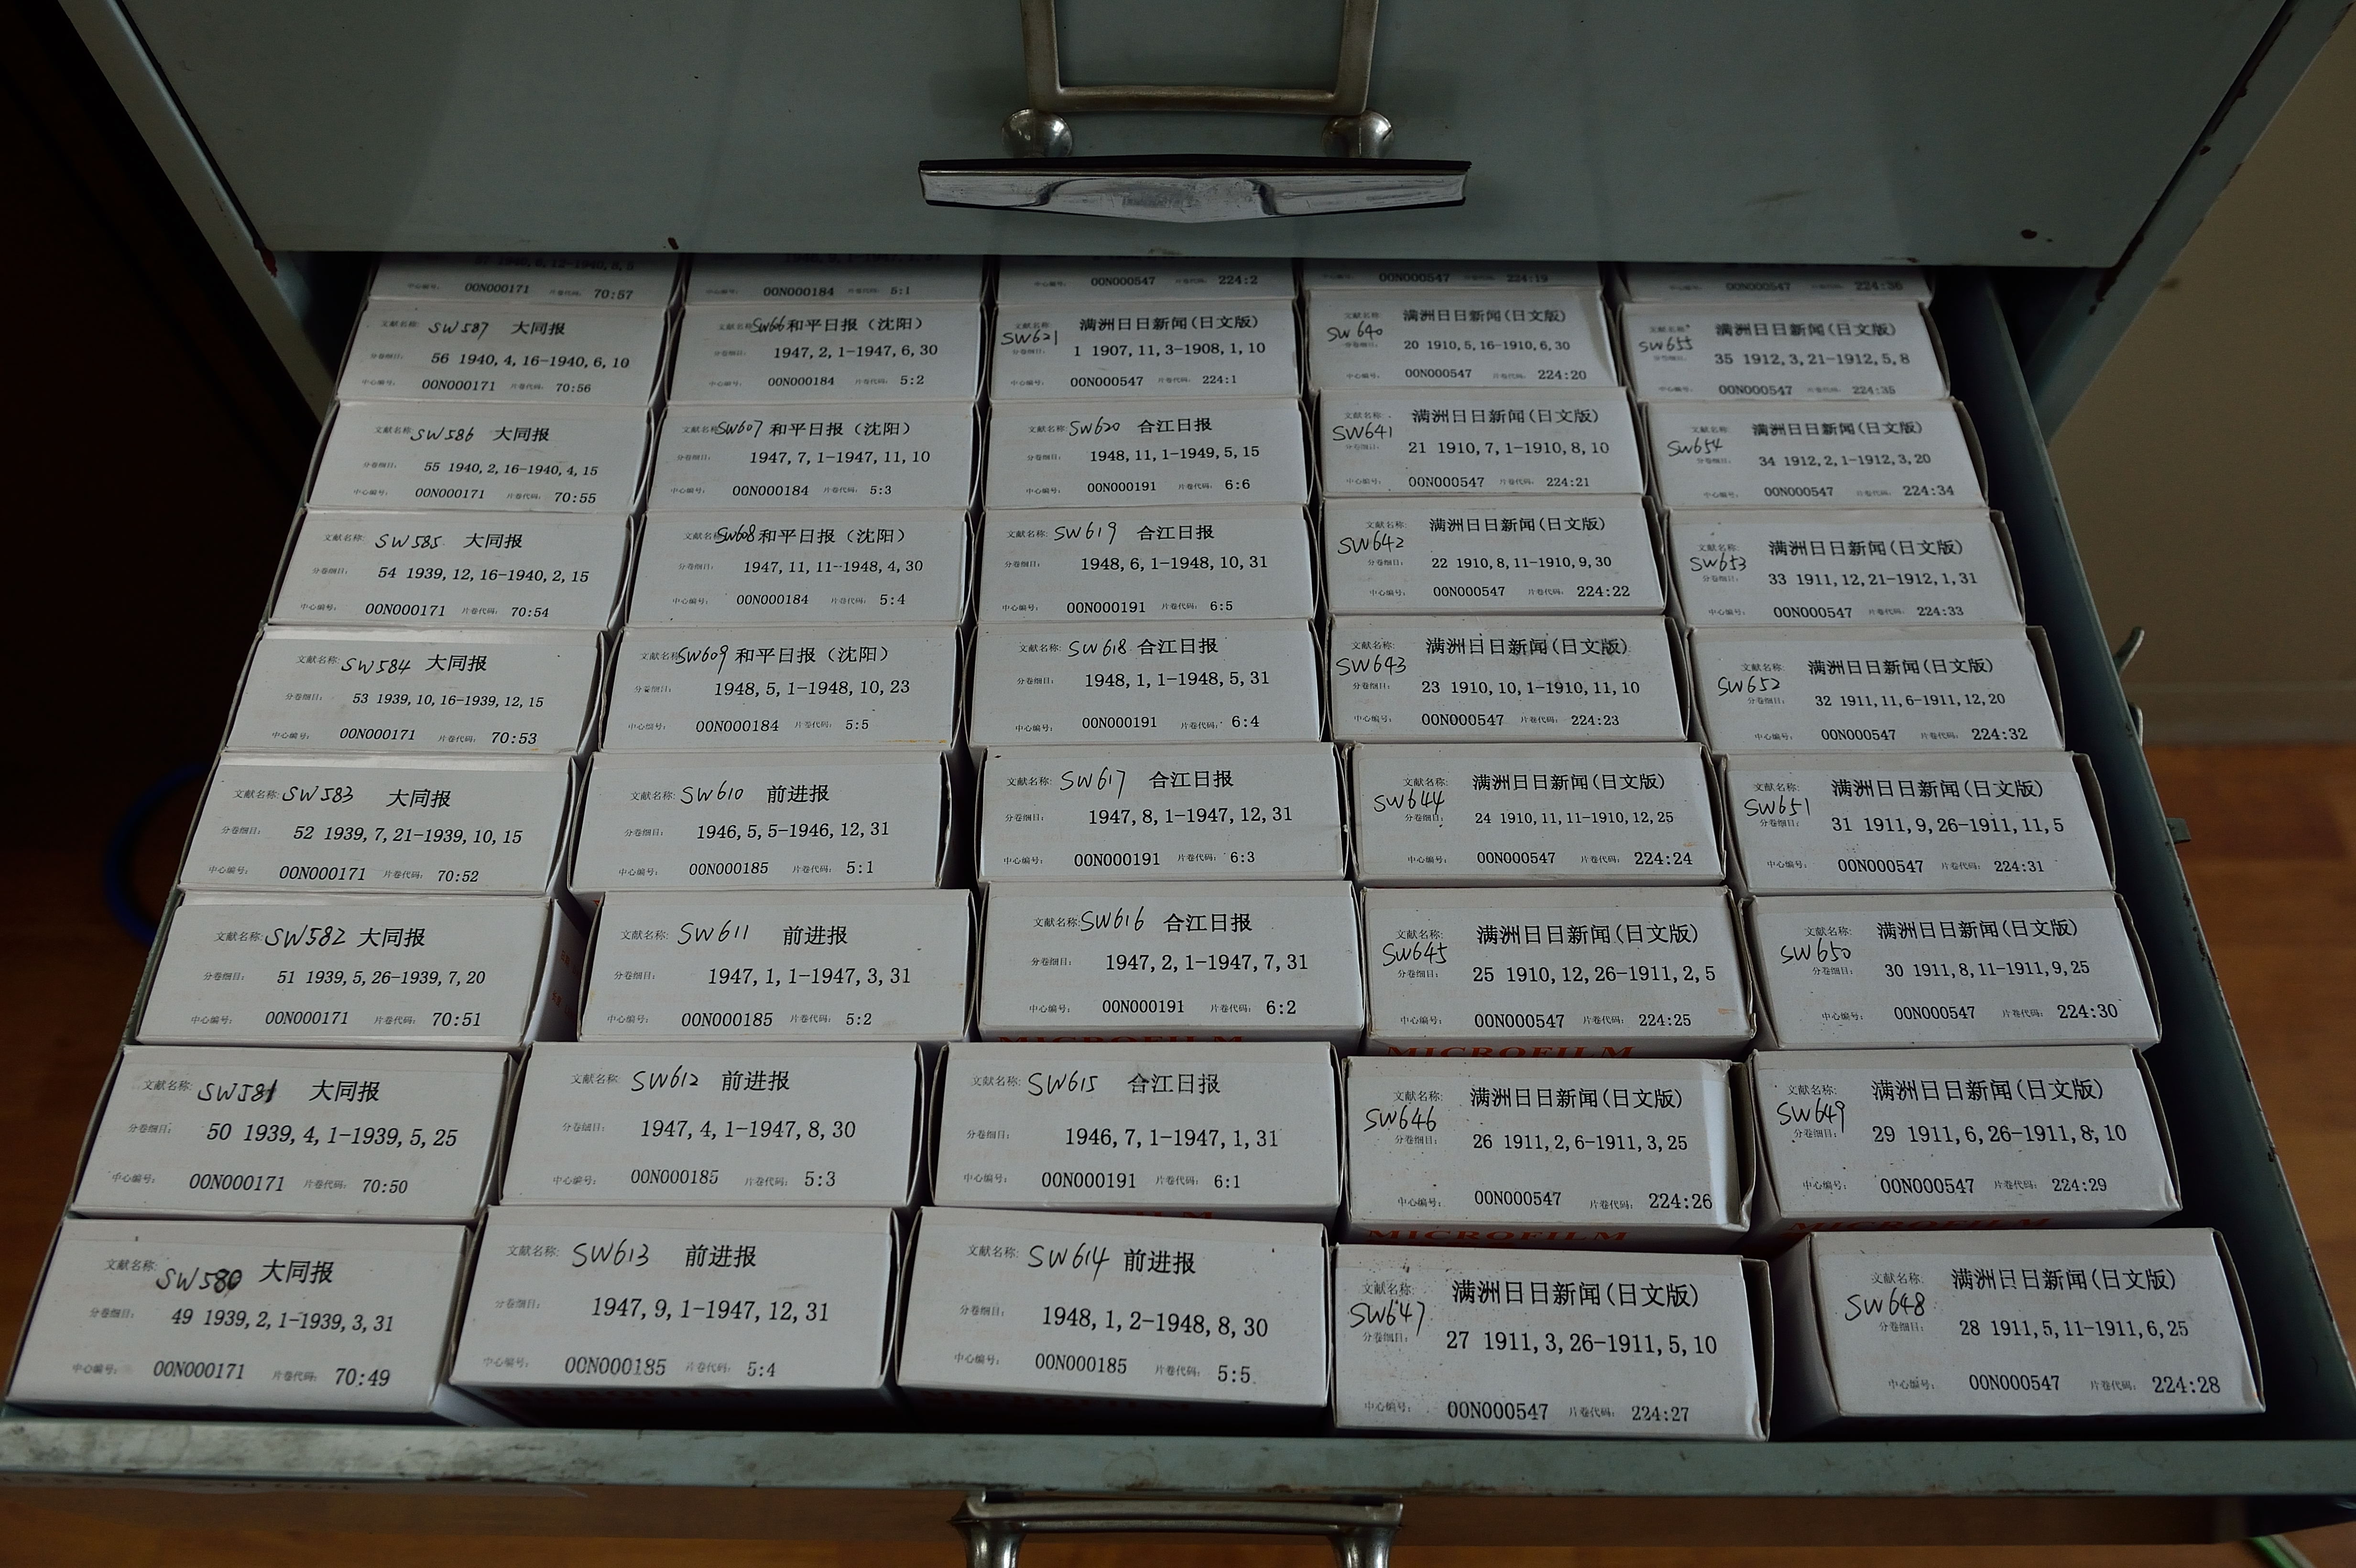 57 1940,6,12-1940,8,5
中心编号: 00N000171 片卷代码: 70:57
中心编号: 00N000184 片卷代码: 5:1
00N000547 片卷代码: 224:2
00N000547 片卷代码: 224:19
00N000547 224:36
文献名称: SW587 大同报
分卷细目: 56 1940,4,16-1940,6,10
中心编号: 00N000171 片卷代码: 70:56
文献名称: 和平日报（沈阳）
分卷细目: 1947,2,1-1947,6,30
中心编号: 00N000184 片卷代码: 5:2
文献名称: 满洲日日新闻(日文版)
SW621
分卷细目: 1 1907,11,3-1908,1,10
中心编号: 00N000547 片卷代码: 224:1
文献名称: 满洲日日新闻(日文版)
SW640
分卷细目: 20 1910,5,16-1910,6,30
中心编号: 00N000547 片卷代码: 224:20
文献名称: 满洲日日新闻(日文版)
SW655
分卷细目: 35 1912,3,21-1912,5,8
中心编号: 00N000547 片卷代码: 224:35
文献名称: SW586 大同报
分卷细目: 55 1940,2,16-1940,4,15
中心编号: 00N000171 片卷代码: 70:55
文献名称: SW607 和平日报（沈阳）
分卷细目: 1947,7,1-1947,11,10
中心编号: 00N000184 片卷代码: 5:3
文献名称: SW620 合江日报
分卷细目: 1948,11,1-1949,5,15
中心编号: 00N000191 片卷代码: 6:6
文献名称: 满洲日日新闻(日文版)
SW641
分卷细目: 21 1910,7,1-1910,8,10
中心编号: 00N000547 片卷代码: 224:21
文献名称: 满洲日日新闻(日文版)
SW654
分卷细目: 34 1912,2,1-1912,3,20
中心编号: 00N000547 片卷代码: 224:34
文献名称: SW585 大同报
分卷细目: 54 1939,12,16-1940,2,15
中心编号: 00N000171 片卷代码: 70:54
文献名称: SW608 和平日报（沈阳）
分卷细目: 1947,11,11-1948,4,30
中心编号: 00N000184 片卷代码: 5:4
文献名称: SW619 合江日报
分卷细目: 1948,6,1-1948,10,31
中心编号: 00N000191 片卷代码: 6:5
文献名称: 满洲日日新闻(日文版)
SW642
分卷细目: 22 1910,8,11-1910,9,30
中心编号: 00N000547 片卷代码: 224:22
文献名称: 满洲日日新闻(日文版)
SW653
分卷细目: 33 1911,12,21-1912,1,31
中心编号: 00N000547 片卷代码: 224:33
文献名称: SW584 大同报
分卷细目: 53 1939,10,16-1939,12,15
中心编号: 00N000171 片卷代码: 70:53
文献名称: SW609 和平日报（沈阳）
分卷细目: 1948,5,1-1948,10,23
中心编号: 00N000184 片卷代码: 5:5
文献名称: SW618 合江日报
分卷细目: 1948,1,1-1948,5,31
中心编号: 00N000191 片卷代码: 6:4
文献名称: 满洲日日新闻(日文版)
SW643
分卷细目: 23 1910,10,1-1910,11,10
中心编号: 00N000547 片卷代码: 224:23
文献名称: 满洲日日新闻(日文版)
SW652
分卷细目: 32 1911,11,6-1911,12,20
中心编号: 00N000547 片卷代码: 224:32
文献名称: SW583 大同报
分卷细目: 52 1939,7,21-1939,10,15
中心编号: 00N000171 片卷代码: 70:52
文献名称: SW610 前进报
分卷细目: 1946,5,5-1946,12,31
中心编号: 00N000185 片卷代码: 5:1
文献名称: SW617 合江日报
分卷细目: 1947,8,1-1947,12,31
中心编号: 00N000191 片卷代码: 6:3
文献名称: 满洲日日新闻(日文版)
SW644
分卷细目: 24 1910,11,11-1910,12,25
中心编号: 00N000547 片卷代码: 224:24
文献名称: 满洲日日新闻(日文版)
SW651
分卷细目: 31 1911,9,26-1911,11,5
中心编号: 00N000547 片卷代码: 224:31
文献名称: SW582 大同报
分卷细目: 51 1939,5,26-1939,7,20
中心编号: 00N000171 片卷代码: 70:51
文献名称: SW611 前进报
分卷细目: 1947,1,1-1947,3,31
中心编号: 00N000185 片卷代码: 5:2
文献名称: SW616 合江日报
分卷细目: 1947,2,1-1947,7,31
中心编号: 00N000191 片卷代码: 6:2
MICROFILM
文献名称: 满洲日日新闻(日文版)
SW645
分卷细目: 25 1910,12,26-1911,2,5
中心编号: 00N000547 片卷代码: 224:25
MICROFILM
文献名称: 满洲日日新闻(日文版)
SW650
分卷细目: 30 1911,8,11-1911,9,25
中心编号: 00N000547 片卷代码: 224:30
文献名称: SW581 大同报
分卷细目: 50 1939,4,1-1939,5,25
中心编号: 00N000171 片卷代码: 70:50
文献名称: SW612 前进报
分卷细目: 1947,4,1-1947,8,30
中心编号: 00N000185 片卷代码: 5:3
文献名称: SW615 合江日报
分卷细目: 1946,7,1-1947,1,31
中心编号: 00N000191 片卷代码: 6:1
文献名称: 满洲日日新闻(日文版)
SW646
分卷细目: 26 1911,2,6-1911,3,25
中心编号: 00N000547 片卷代码: 224:26
MICROFILM
文献名称: 满洲日日新闻(日文版)
SW649
分卷细目: 29 1911,6,26-1911,8,10
中心编号: 00N000547 片卷代码: 224:29
MICROFILM
文献名称: SW580 大同报
分卷细目: 49 1939,2,1-1939,3,31
中心编号: 00N000171 片卷代码: 70:49
文献名称: SW613 前进报
分卷细目: 1947,9,1-1947,12,31
中心编号: 00N000185 片卷代码: 5:4
文献名称: SW614 前进报
分卷细目: 1948,1,2-1948,8,30
中心编号: 00N000185 片卷代码: 5:5
文献名称: 满洲日日新闻(日文版)
SW647
分卷细目: 27 1911,3,26-1911,5,10
中心编号: 00N000547 片卷代码: 224:27
文献名称: 满洲日日新闻(日文版)
SW648
分卷细目: 28 1911,5,11-1911,6,25
中心编号: 00N000547 片卷代码: 224:28